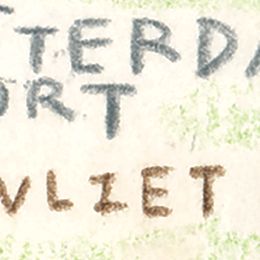 TERDA
ORT
VLIET